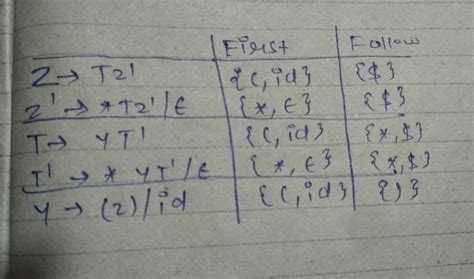 First Follow
Z → TZ' {(,id} {$}
Z' → *TZ'/ε {*,ε} {$}
T → YT' {(,id} {*,$}
T' → * YT'/ε {*,ε} {*,$}
Y → (Z)/id {(,id} {)}